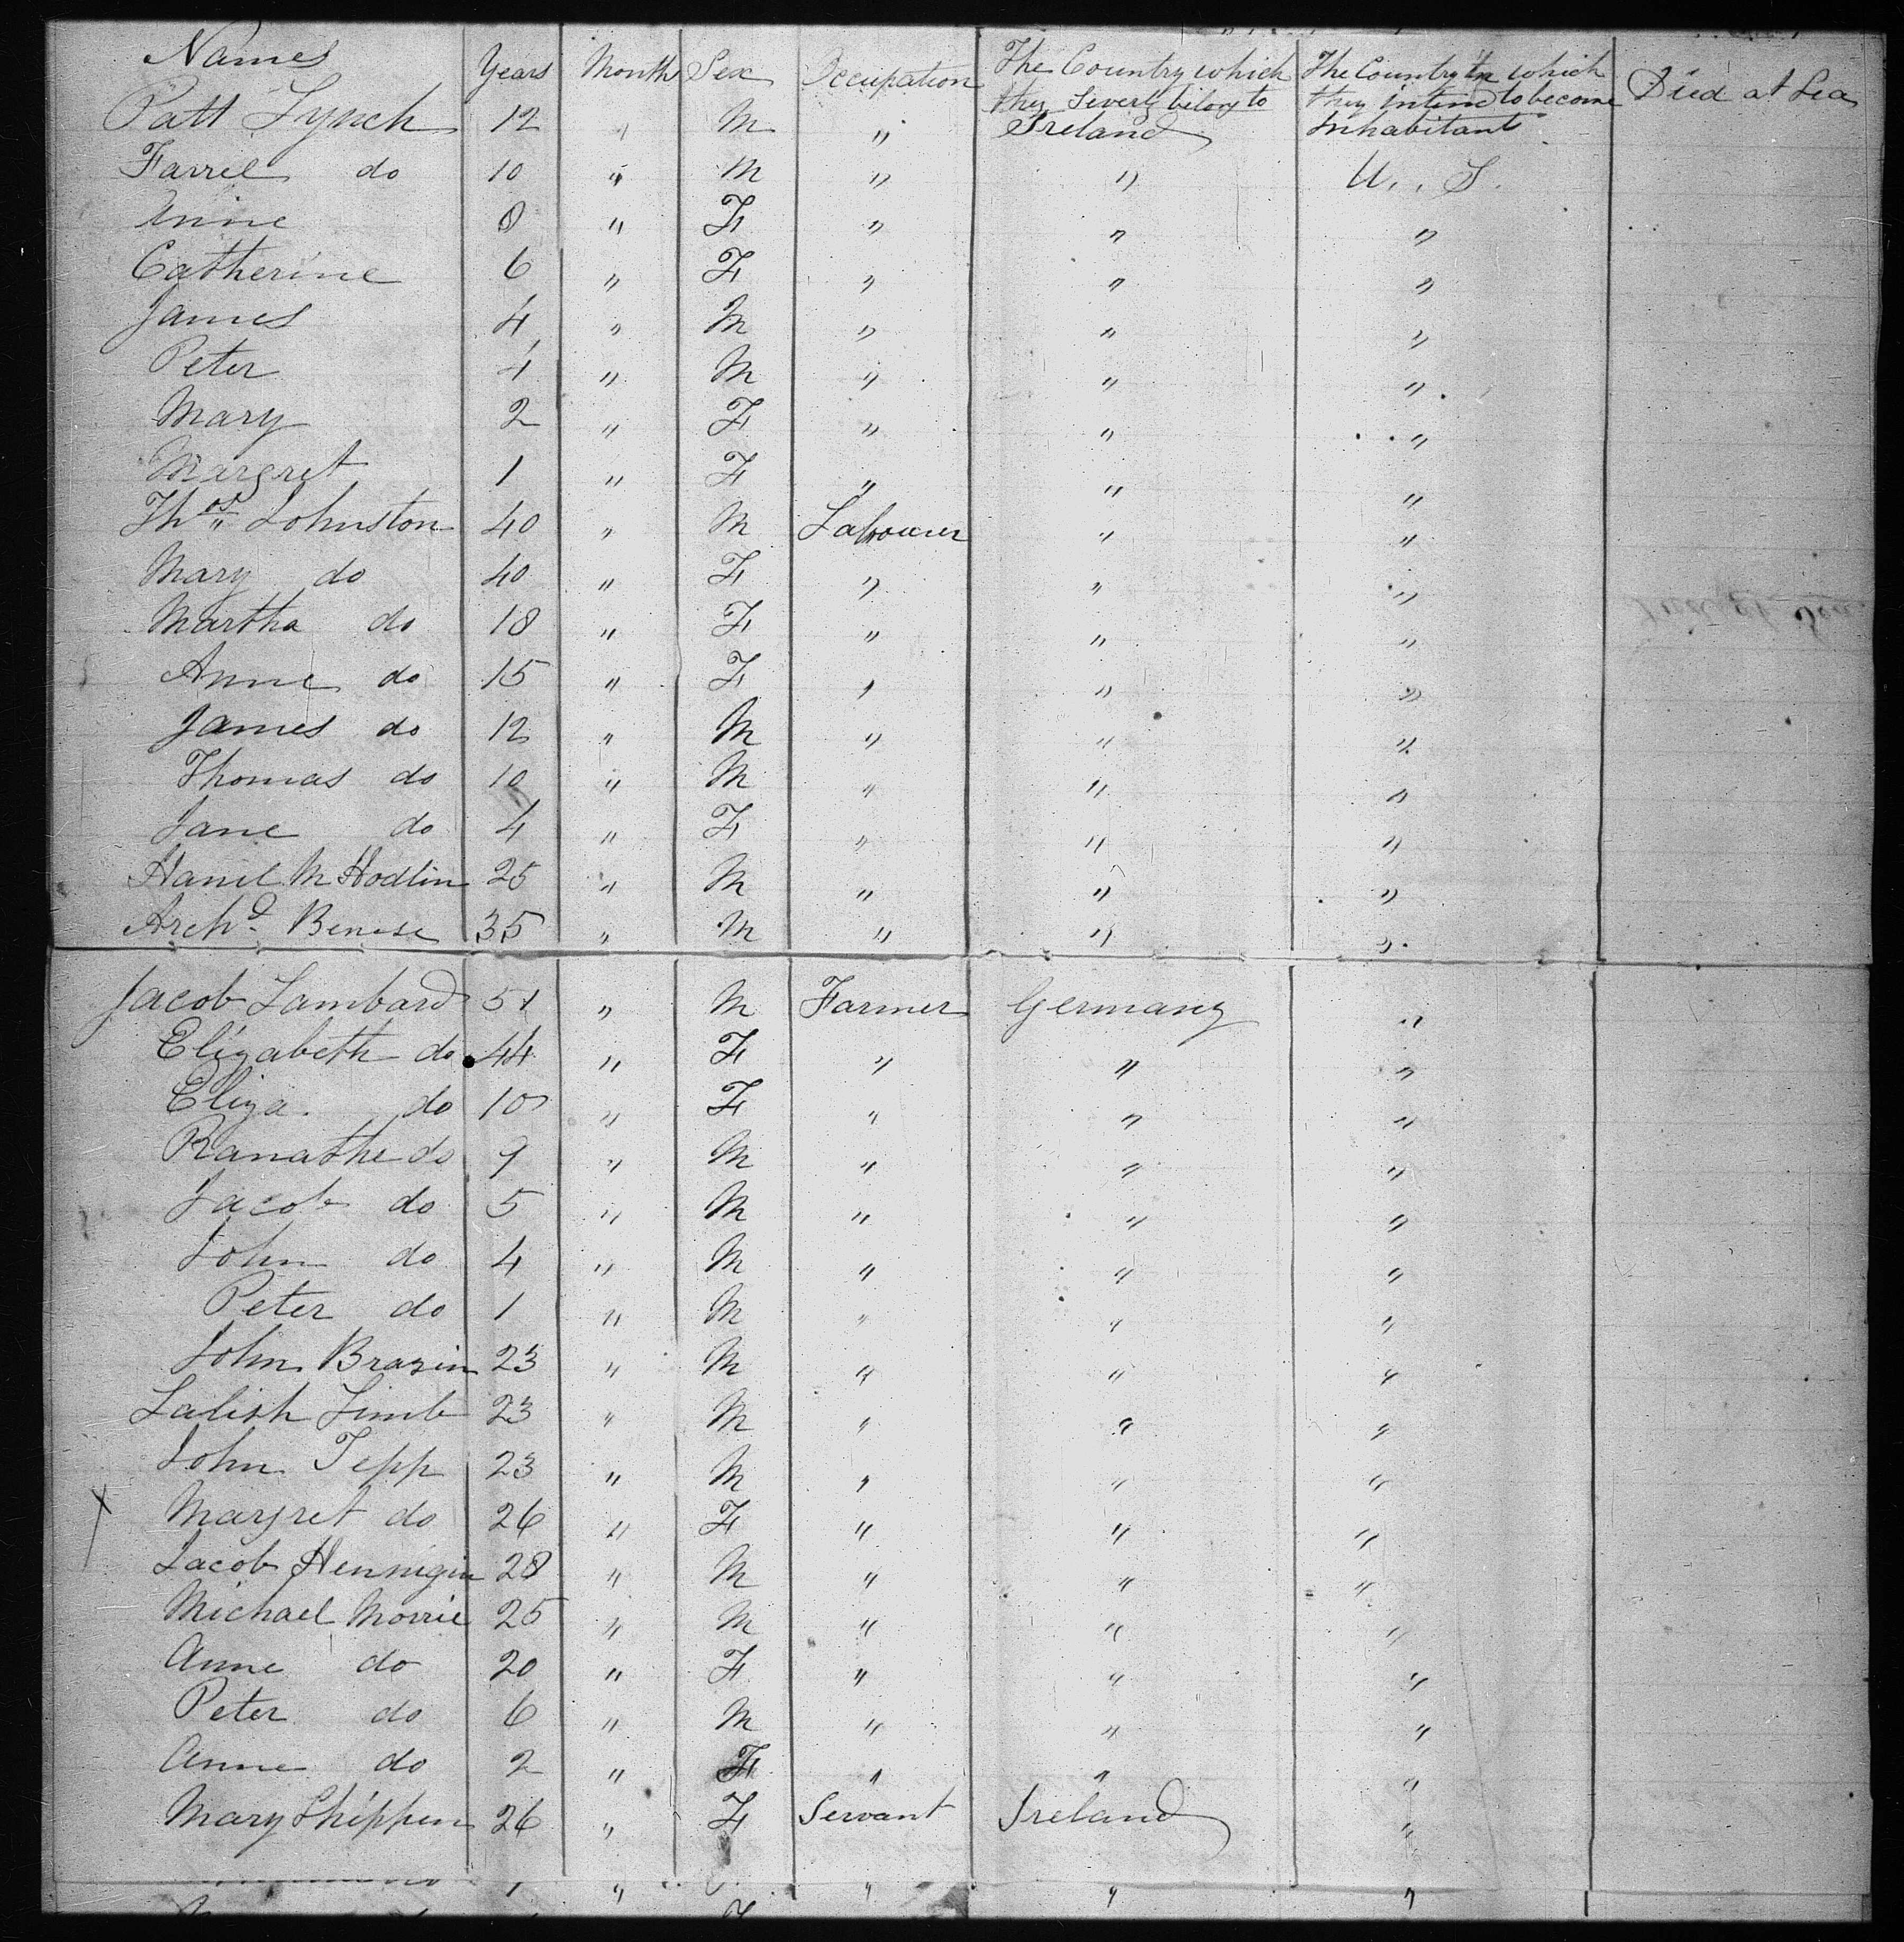 Names Years Month Sex Occupation The Country which they Severly belong to The Country in which they intend to become Inhabitants Died at Sea
Patt Lynch 12 " M " Ireland
Farrel do 10 " M " " U. S.
Anne 8 " F " " "
Catherine 6 " F " " "
James 4 " M " " "
Peter 4 " M " " "
Mary 2 " F " " "
Margret 1 " F " " "
Thos Johnston 40 " M Labourer " "
Mary do 40 " F " " "
Martha do 18 " F " " "
Anne do 15 " F " " "
James do 12 " M " " "
Thomas do 10 " M " " "
Jane do 4 " F " " "
M Hodlin 25 " M " " "
Archd. 35 " M " " "
Jacob Lambard 51 " M Farmer Germany "
Elizabeth do 44 " F " " "
Eliza do 10 " F " " "
Ranathe do 9 " M " " "
Jacob do 5 " M " " "
John do 4 " M " " "
Peter do 1 " M " " "
John Brazin 23 " M " " "
Lalish Limb 23 " M " " "
John Tepp 23 " M " " "
X Margret do 26 " F " " "
Jacob Hennigin 28 " M " " "
Michael Morrie 25 " M " " "
Anne do 20 " F " " "
Peter do 6 " M " " "
Anne do 2 " F " " "
Mary Shippen 26 " F Servant Ireland "